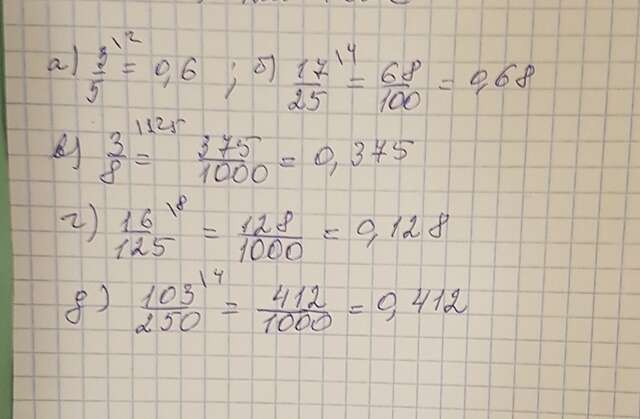 а) 3/5 \2 = 0,6 ; б) 17/25 \4 = 68/100 = 0,68
в) 3/8 \125 = 375/1000 = 0,375
г) 16/125 \8 = 128/1000 = 0,128
д) 103/250 \4 = 412/1000 = 0,412